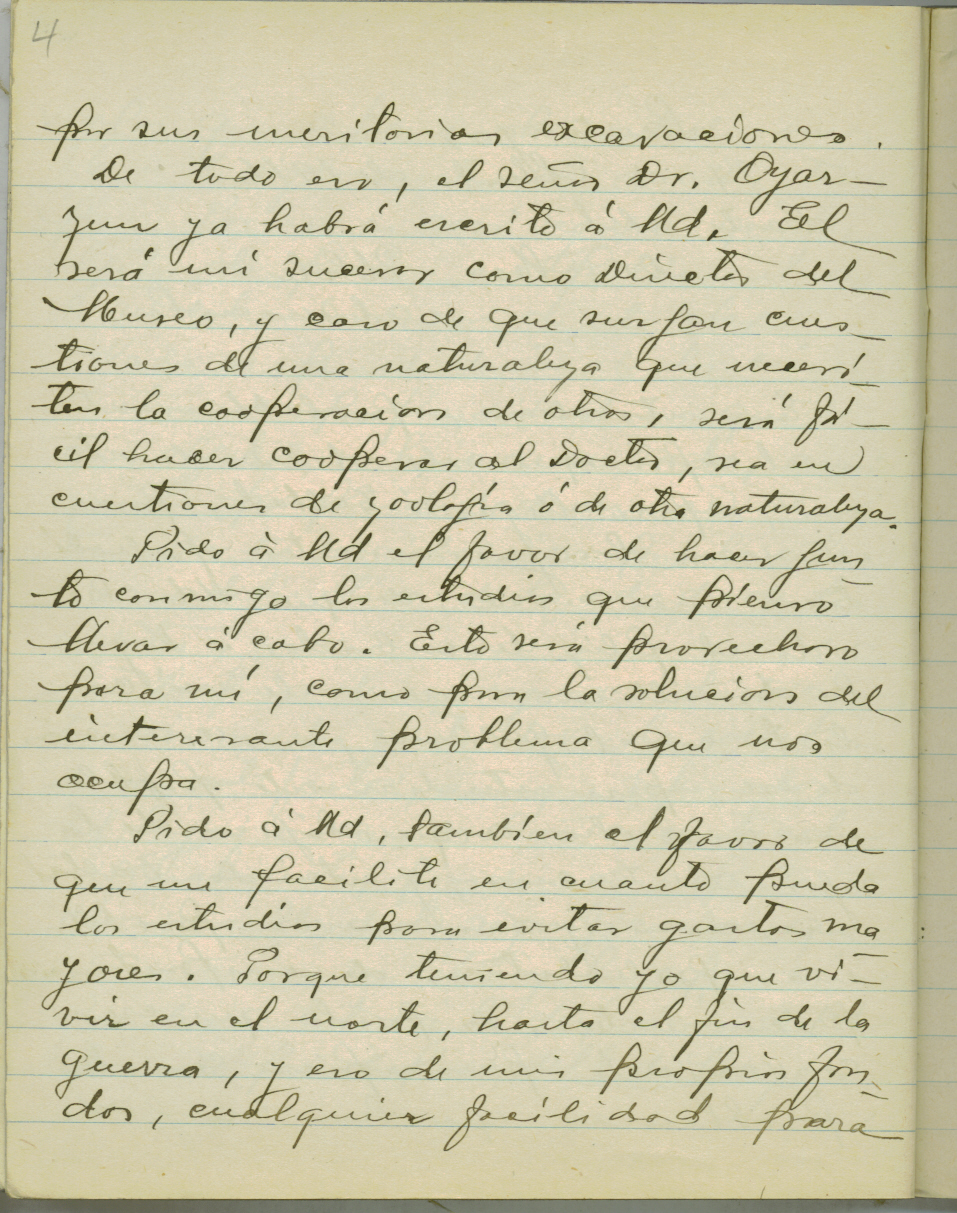 4
por sus meritorias excavaciones.
De todo eso, el señor Dr. Oyar-
zun ya habrá escrito á Ud. El
será mi sucesor como Director del
Museo, y caso de que surjan cues-
tiones de una naturaleza que necesi-
ten la cooperacion de otros, será fá-
cil hacer cooperar al Doctor, sea en
cuestiones de zoología ó de otra naturaleza.
Pido á Ud el favor de hacer jun-
to conmigo los estudios que pienso
llevar á cabo. Esto será provechoso
para mí, como para la solucion del
interesante problema que nos
ocupa.
Pido á Ud, tambien el favor de
que me facilite en cuanto pueda
los estudios para evitar gastos ma-
yores. Porque teniendo yo que vi-
vir en el norte, hasta el fin de la
guerra, y eso de mis proprios fon-
dos, cualquier facilidad para